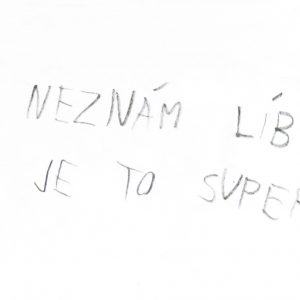 NEZNÁM LÍB
JE TO SUPER